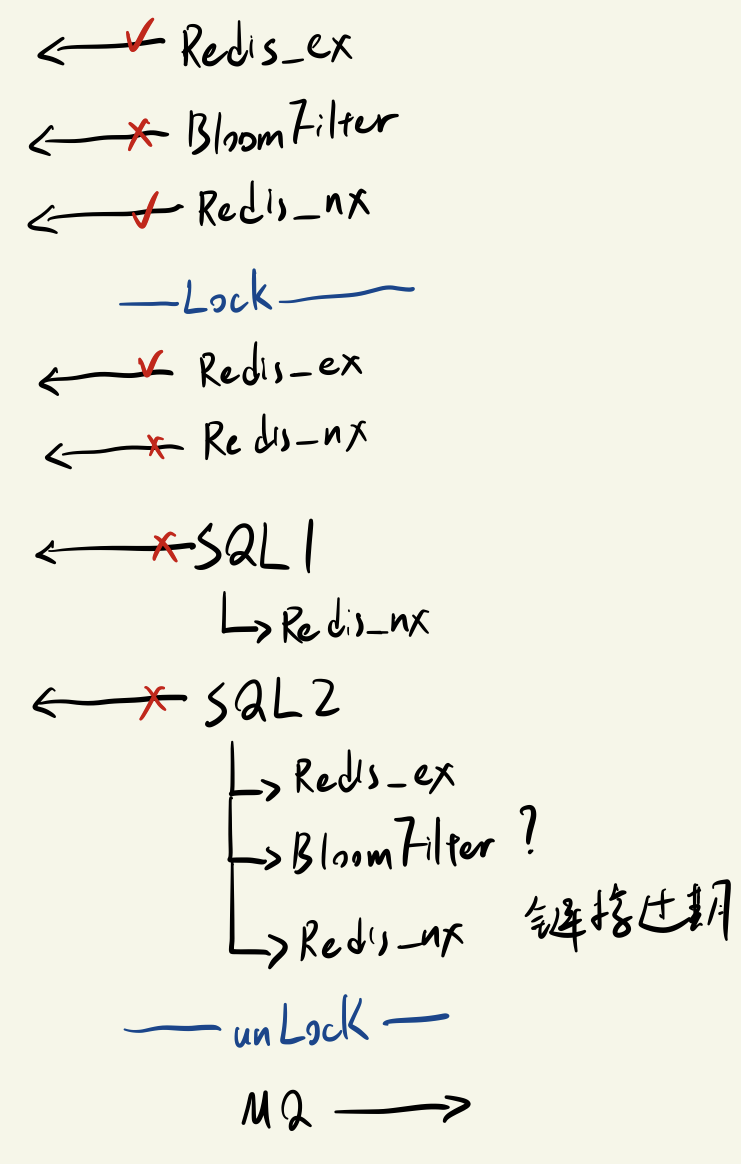 Redis_ex
BloomFilter
Redis_nx
Lock
Redis_ex
Redis_nx
SQL1
Redis_nx
SQL2
Redis_ex
BloomFilter ?
链接过期
Redis_nx
unLock
MQ